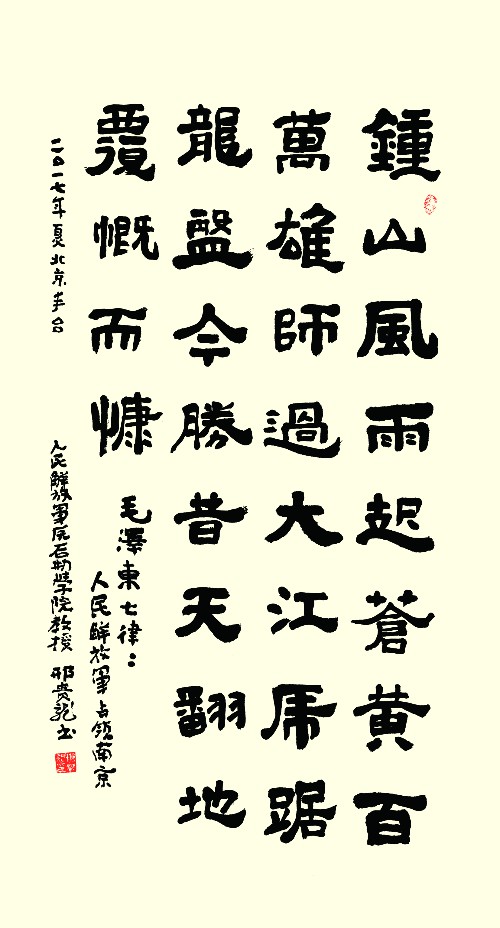 鍾山風雨起蒼黄百
萬雄師過大江虎踞
龍盤今勝昔天翻地
覆慨而慷
毛澤東七律：
人民解放軍占领南京
二〇一七年夏北京丰台
人民解放軍原后勤學院教授 邢贵龙书